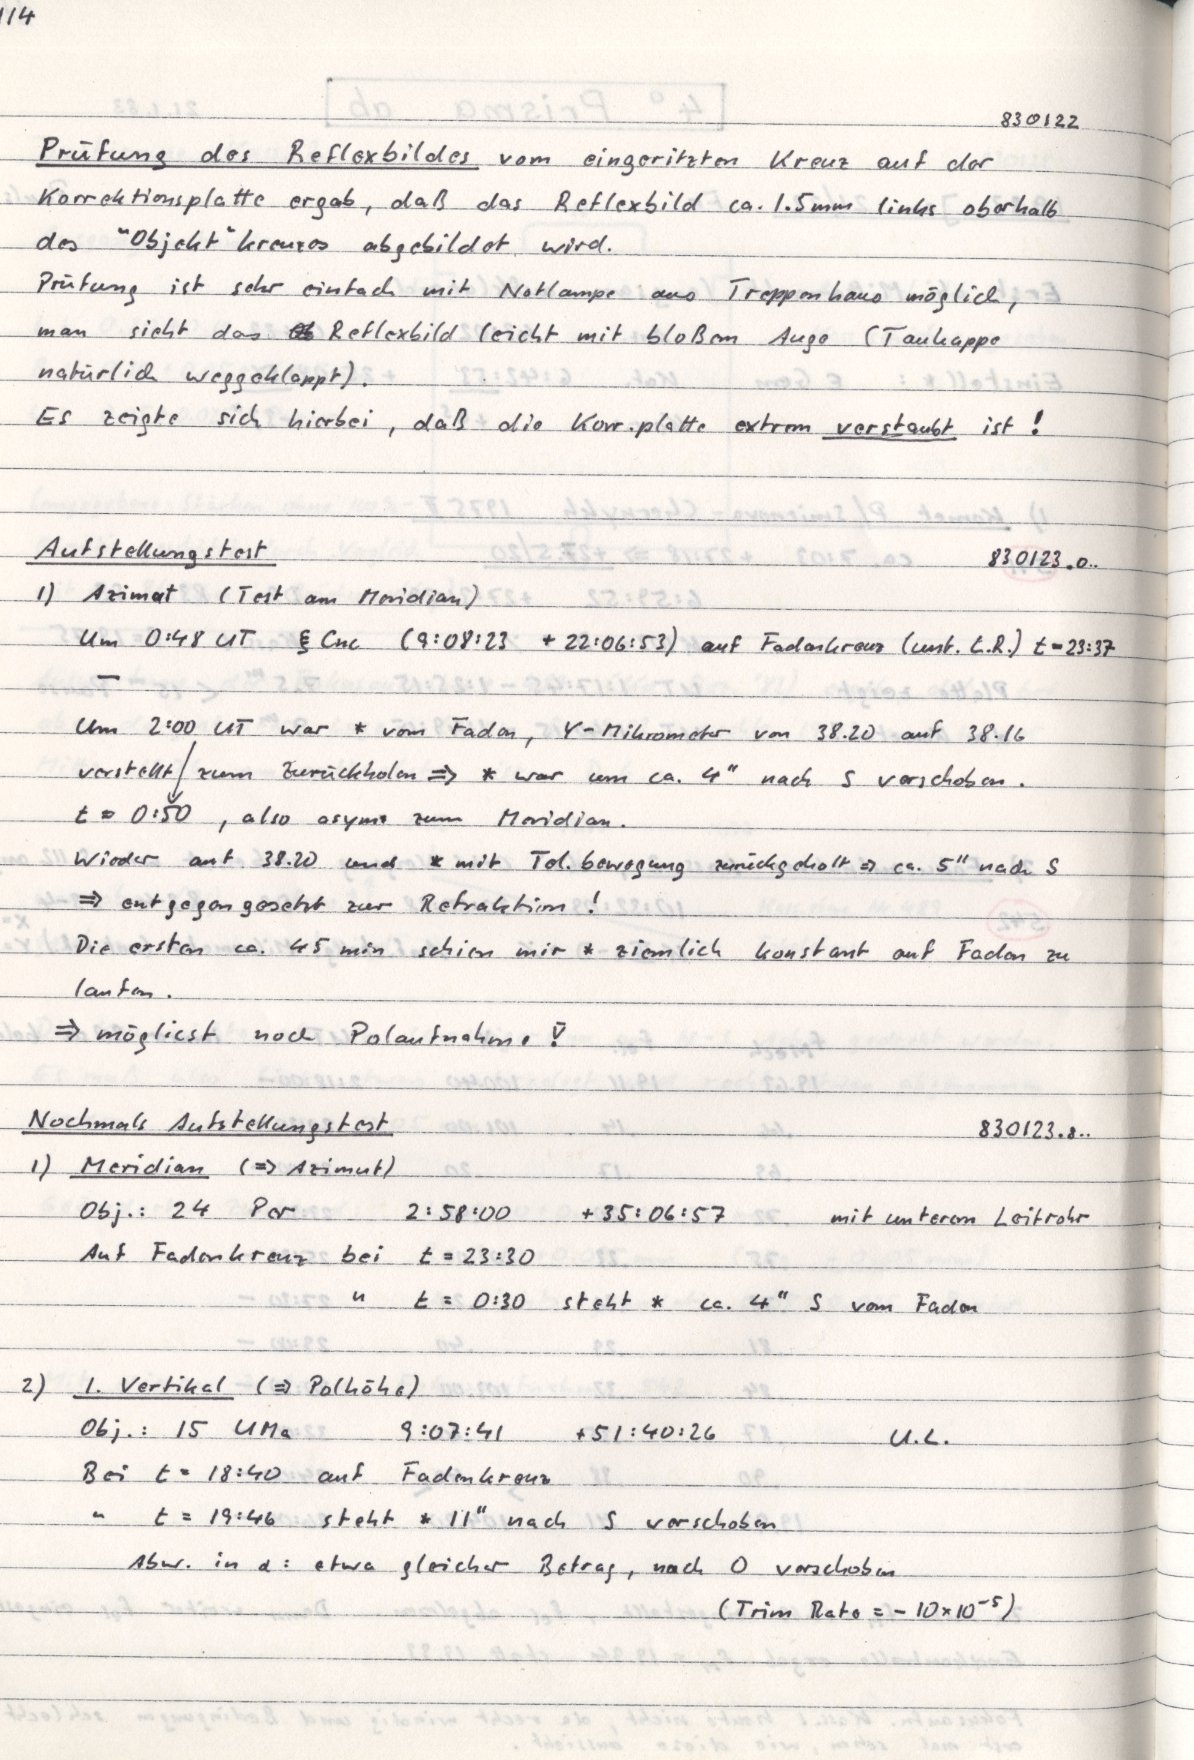 114
830122
Prüfung des Reflexbildes vom eingeritzten Kreuz auf der
Korrektionsplatte ergab, daß das Reflexbild ca. 1.5mm links oberhalb
des "Objekt"kreuzes abgebildet wird.
Prüfung ist sehr einfach mit Notlampe aus Treppenhaus möglich,
man sieht das Reflexbild leicht mit bloßem Auge (Taukappe
natürlich weggeklappt).
Es zeigte sich hierbei, daß die Korr.platte extrem verstaubt ist!
Aufstellungstest 830123.0..
1) Azimut (Test am Meridian)
Um 0:48 UT ξ Cnc (9:08:23 +22:06:53) auf Fadenkreuz (unt. L.R.) t=23:37
Um 2:00 UT war * vom Faden, Y-Mikrometer von 38.20 auf 38.16
verstellt zum Zurückholen ⇒ * war um ca. 4" nach S verschoben.
t = 0:50, also asym. zum Meridian.
Wieder auf 38.20 und * mit Tel.bewegung zurückgeholt ⇒ ca. 5" nach S
⇒ entgegengesetzt zur Refraktion!
Die ersten ca. 45 min schien mir * ziemlich konstant auf Faden zu
laufen.
⇒ möglicst noch Polaufnahme!
Nochmals Aufstellungstest 830123.8..
1) Meridian (⇒ Azimut)
Obj.: 24 Per 2:58:00 +35:06:57 mit unterem Leitrohr
Auf Fadenkreuz bei t = 23:30
" t = 0:30 steht * ca. 4" S vom Faden
2) 1. Vertikal (⇒ Polhöhe)
Obj.: 15 UMa 9:07:41 +51:40:26 U.L.
Bei t = 18:40 auf Fadenkreuz
" t = 19:46 steht * 11" nach S verschoben
Abw. in α: etwa gleicher Betrag, nach O verschoben
(Trim Rate = -10×10⁻⁵)